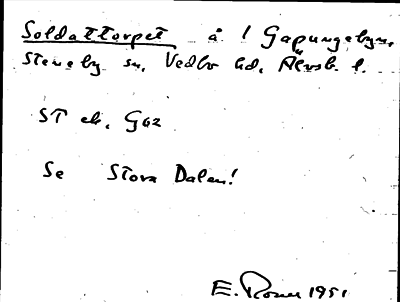 Soldattorpet å 1 Gapungebyn,
Steneby sn, Vedbo hd, Älvsb. l.
ST ek. G62
Se Stora Dalen!
E. Rosen 1951